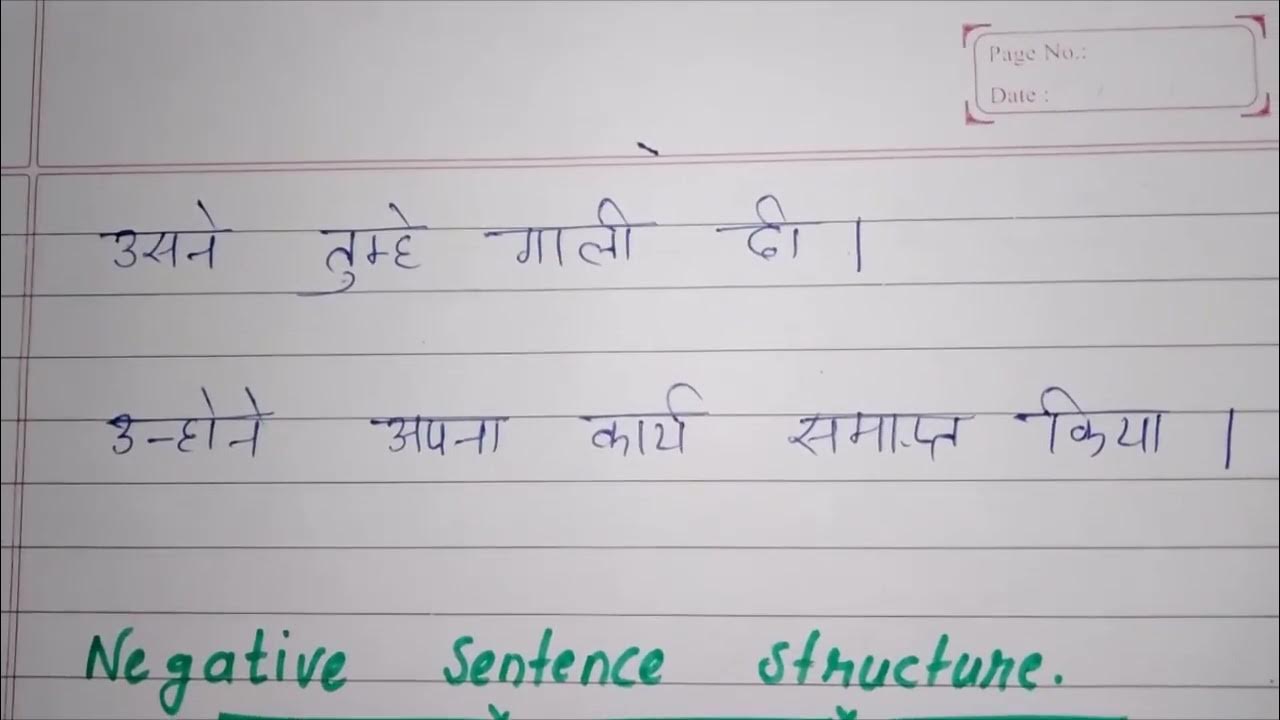 Page No.:
Date :
उसने तुम्हे गाली दी ।
उन्होने अपना कार्य समाप्त किया ।
Negative sentence structure.